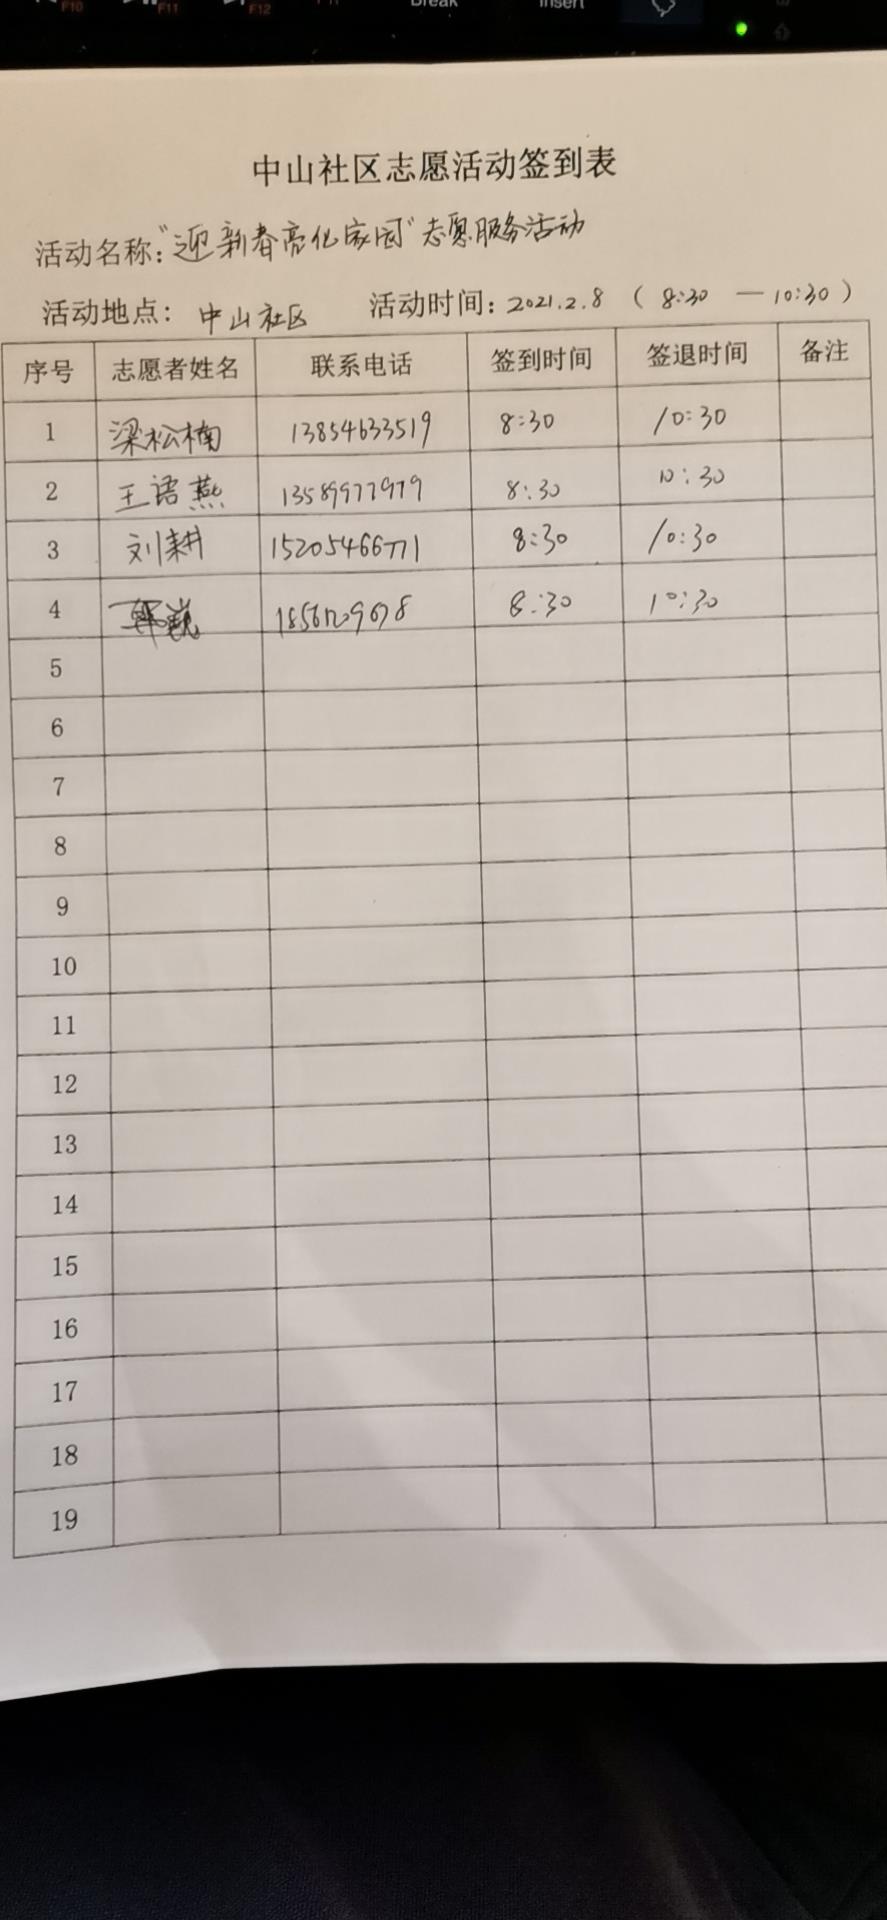 F10 F11 F12 Break Insert
中山社区志愿活动签到表
活动名称:“迎新春亮化家园”志愿服务活动
活动地点: 中山社区 活动时间: 2021.2.8 ( 8:30 — 10:30 )
序号 志愿者姓名 联系电话 签到时间 签退时间 备注
1 梁松楠 13854633519 8:30 10:30
2 王语燕 13589977979 8:30 10:30
3 刘耕 15205466771 8:30 10:30
4 8:30 10:30
5
6
7
8
9
10
11
12
13
14
15
16
17
18
19